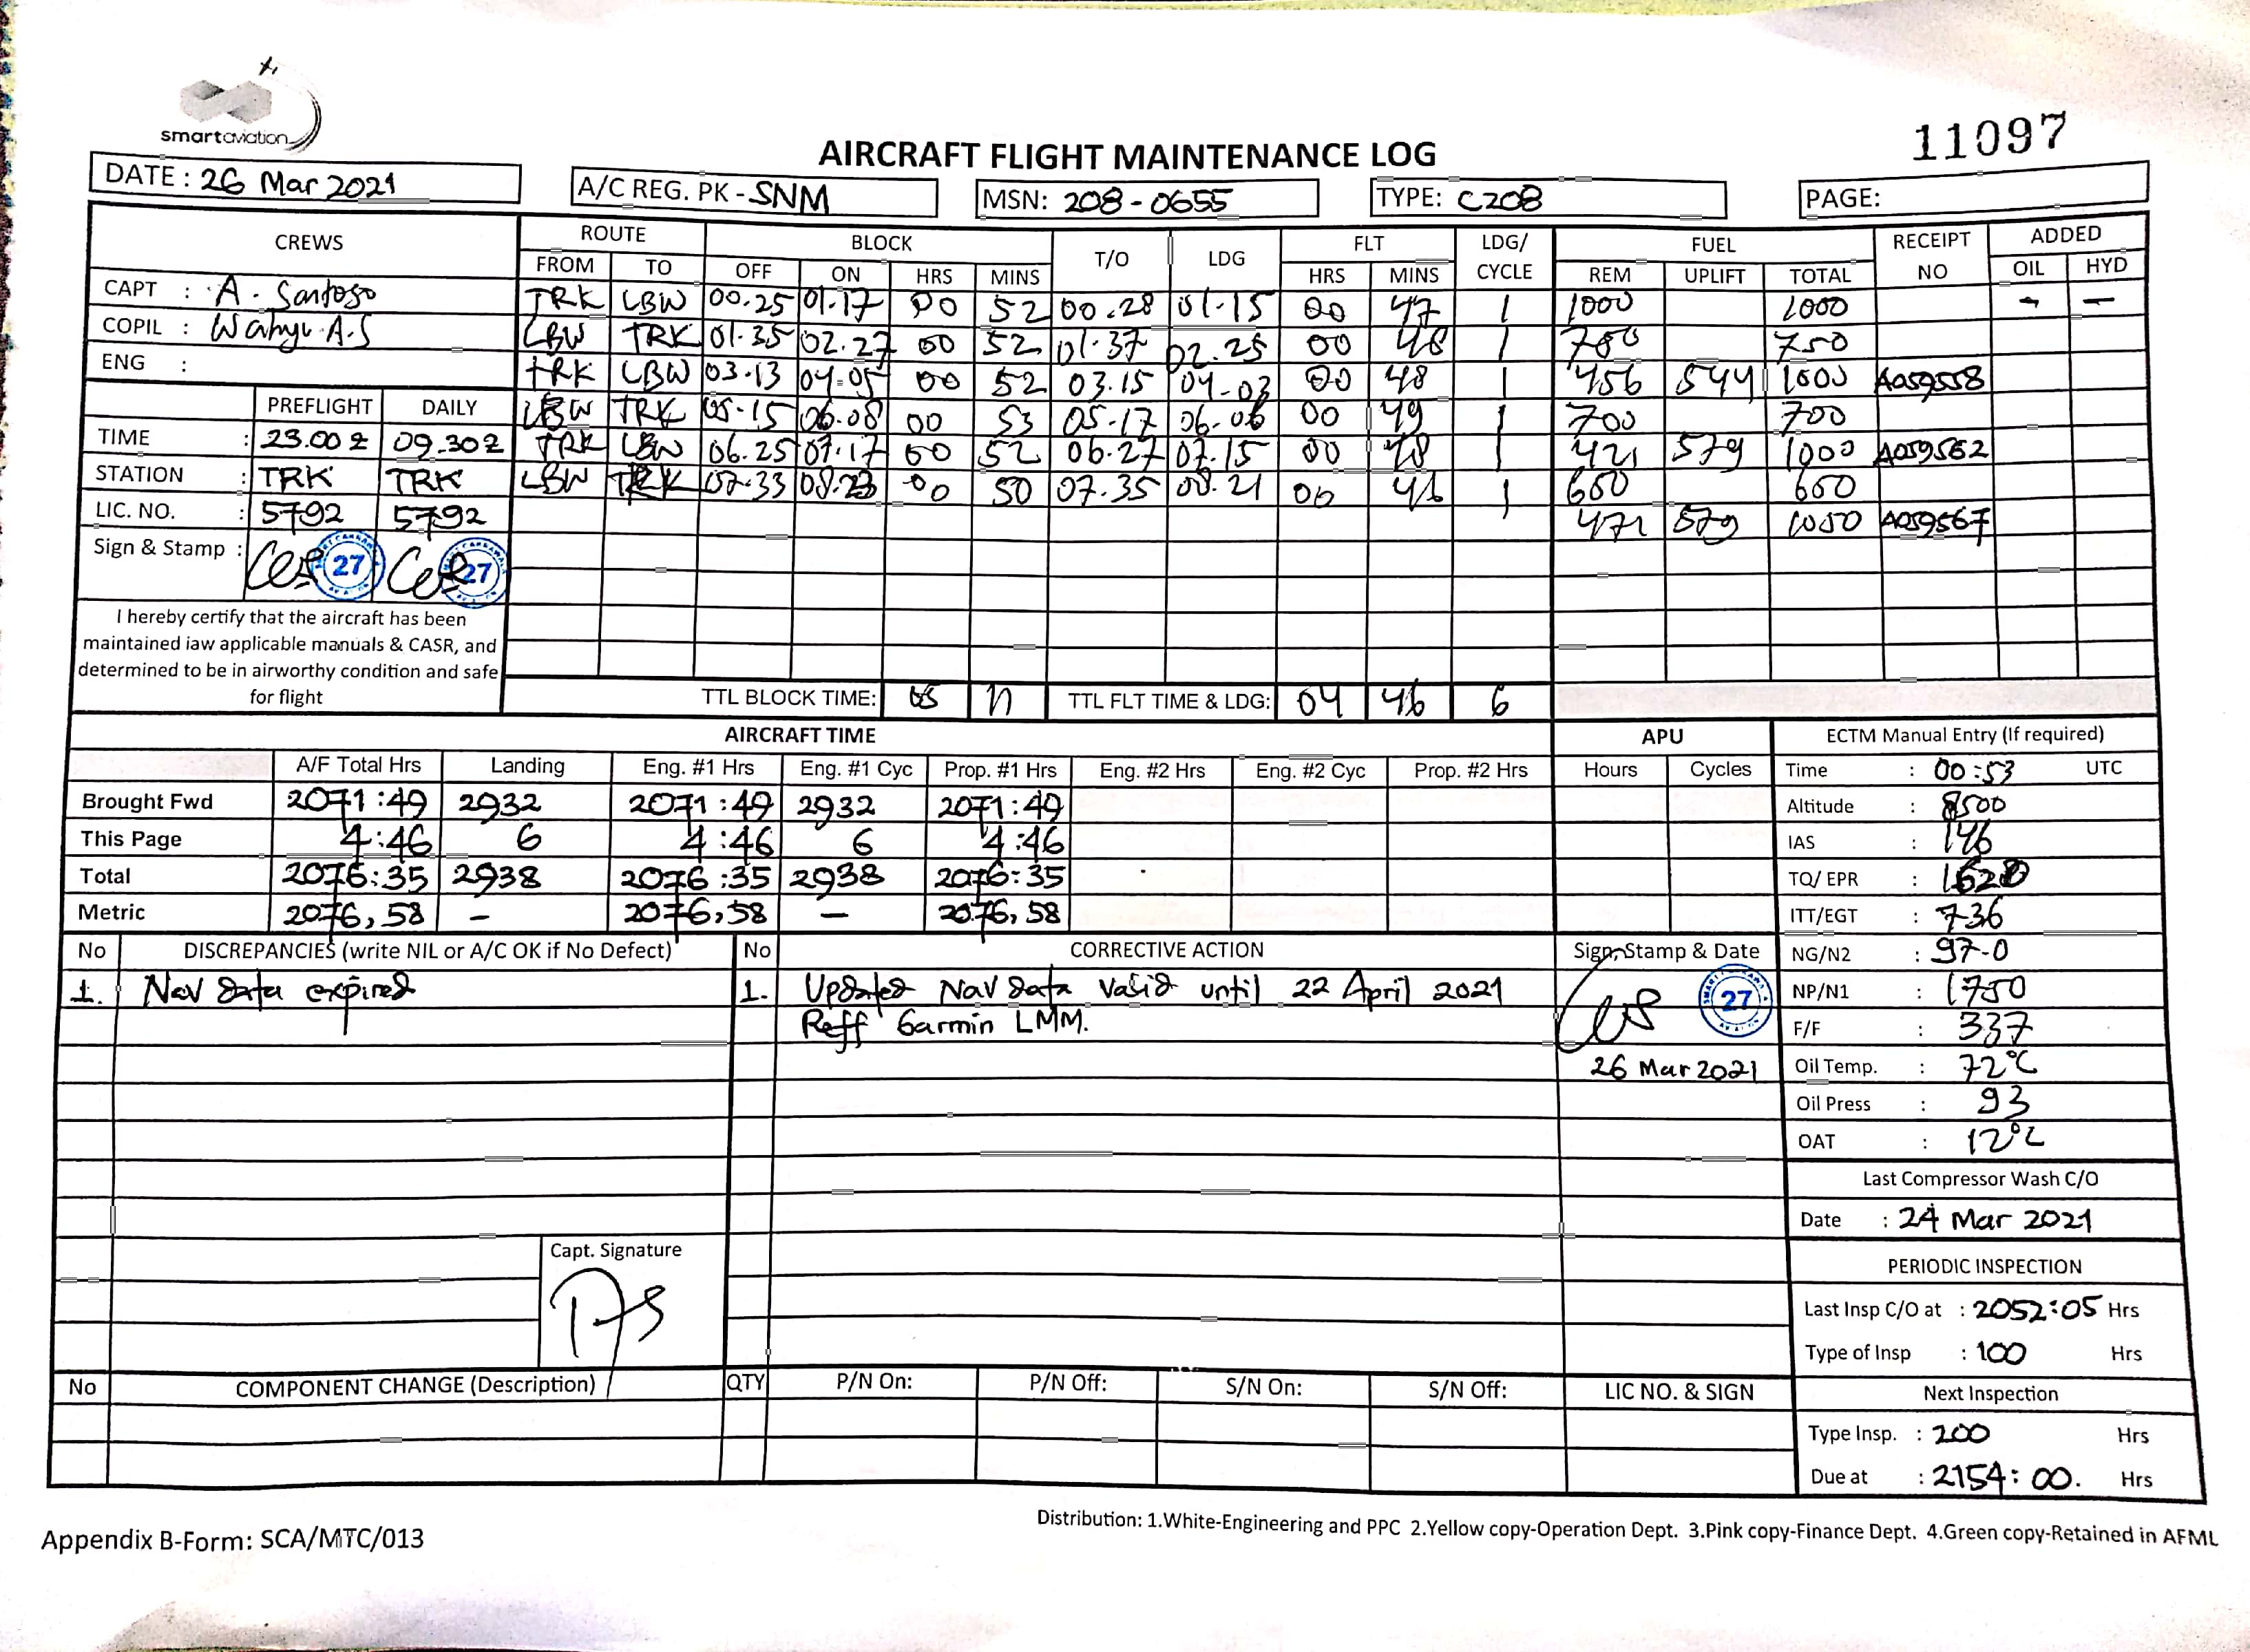 smartaviation
11097
AIRCRAFT FLIGHT MAINTENANCE LOG
DATE : 26 Mar 2021 A/C REG. PK - SNM MSN: 208 - 0655 TYPE: C208 PAGE:
CREWS ROUTE BLOCK T/O LDG FLT LDG/ CYCLE FUEL RECEIPT NO ADDED
FROM TO OFF ON HRS MINS HRS MINS REM UPLIFT TOTAL OIL HYD
CAPT : A. Santoso TRK LBW 00.25 01.17 00 52 00.28 01.15 00 47 1 1000 1000 - -
COPIL : Wahyu A.S LBW TRK 01.35 02.27 00 52 01.37 02.25 00 48 1 750
ENG : TRK LBW 03.13 04.05 00 52 03.15 04.03 00 48 1 456 544 1000 A059558
PREFLIGHT DAILY LBW TRK 05.15 06.08 00 53 05.17 06.06 00 49 1 700 700
TIME : 23.00 z 09.30 z TRK LBW 06.25 07.17 00 52 06.27 07.15 00 48 1 421 579 1000 A059562
STATION : TRK TRK LBW TRK 07.33 08.23 00 50 07.35 08.21 00 46 1 600 600
LIC. NO. : 5792 5792 471 579 1050 A059567
Sign & Stamp : 27 27
I hereby certify that the aircraft has been
maintained iaw applicable manuals & CASR, and
determined to be in airworthy condition and safe
for flight
TTL BLOCK TIME: 05 11 TTL FLT TIME & LDG: 04 46 6
AIRCRAFT TIME APU ECTM Manual Entry (If required)
A/F Total Hrs Landing Eng. #1 Hrs Eng. #1 Cyc Prop. #1 Hrs Eng. #2 Hrs Eng. #2 Cyc Prop. #2 Hrs Hours Cycles Time : 00:53 UTC
Brought Fwd 2071:49 2932 2071:49 2932 2071:49 Altitude : 8500
This Page 4:46 6 4:46 6 4:46 IAS : 146
Total 2076:35 2938 2076:35 2938 2076:35 TQ/ EPR :
Metric 2076,58 - 2076,58 - 2076,58 ITT/EGT : 736
No DISCREPANCIES (write NIL or A/C OK if No Defect) No CORRECTIVE ACTION Sign, Stamp & Date NG/N2 : 97.0
1. Nav data expired 1. Updated Nav data valid until 22 April 2021 27 NP/N1 : 1750
Reff Garmin LMM. F/F : 337
26 Mar 2021 Oil Temp. : 72°C
Oil Press : 93
OAT : 12°C
Last Compressor Wash C/O
Date : 24 Mar 2021
Capt. Signature
PERIODIC INSPECTION
Last Insp C/O at : 2052:05 Hrs
Type of Insp : 100 Hrs
No COMPONENT CHANGE (Description) QTY P/N On: P/N Off: S/N On: S/N Off: LIC NO. & SIGN Next Inspection
Type Insp. : 200 Hrs
Due at : 2154:00. Hrs
Distribution: 1.White-Engineering and PPC 2.Yellow copy-Operation Dept. 3.Pink copy-Finance Dept. 4.Green copy-Retained in AFML
Appendix B-Form: SCA/MTC/013